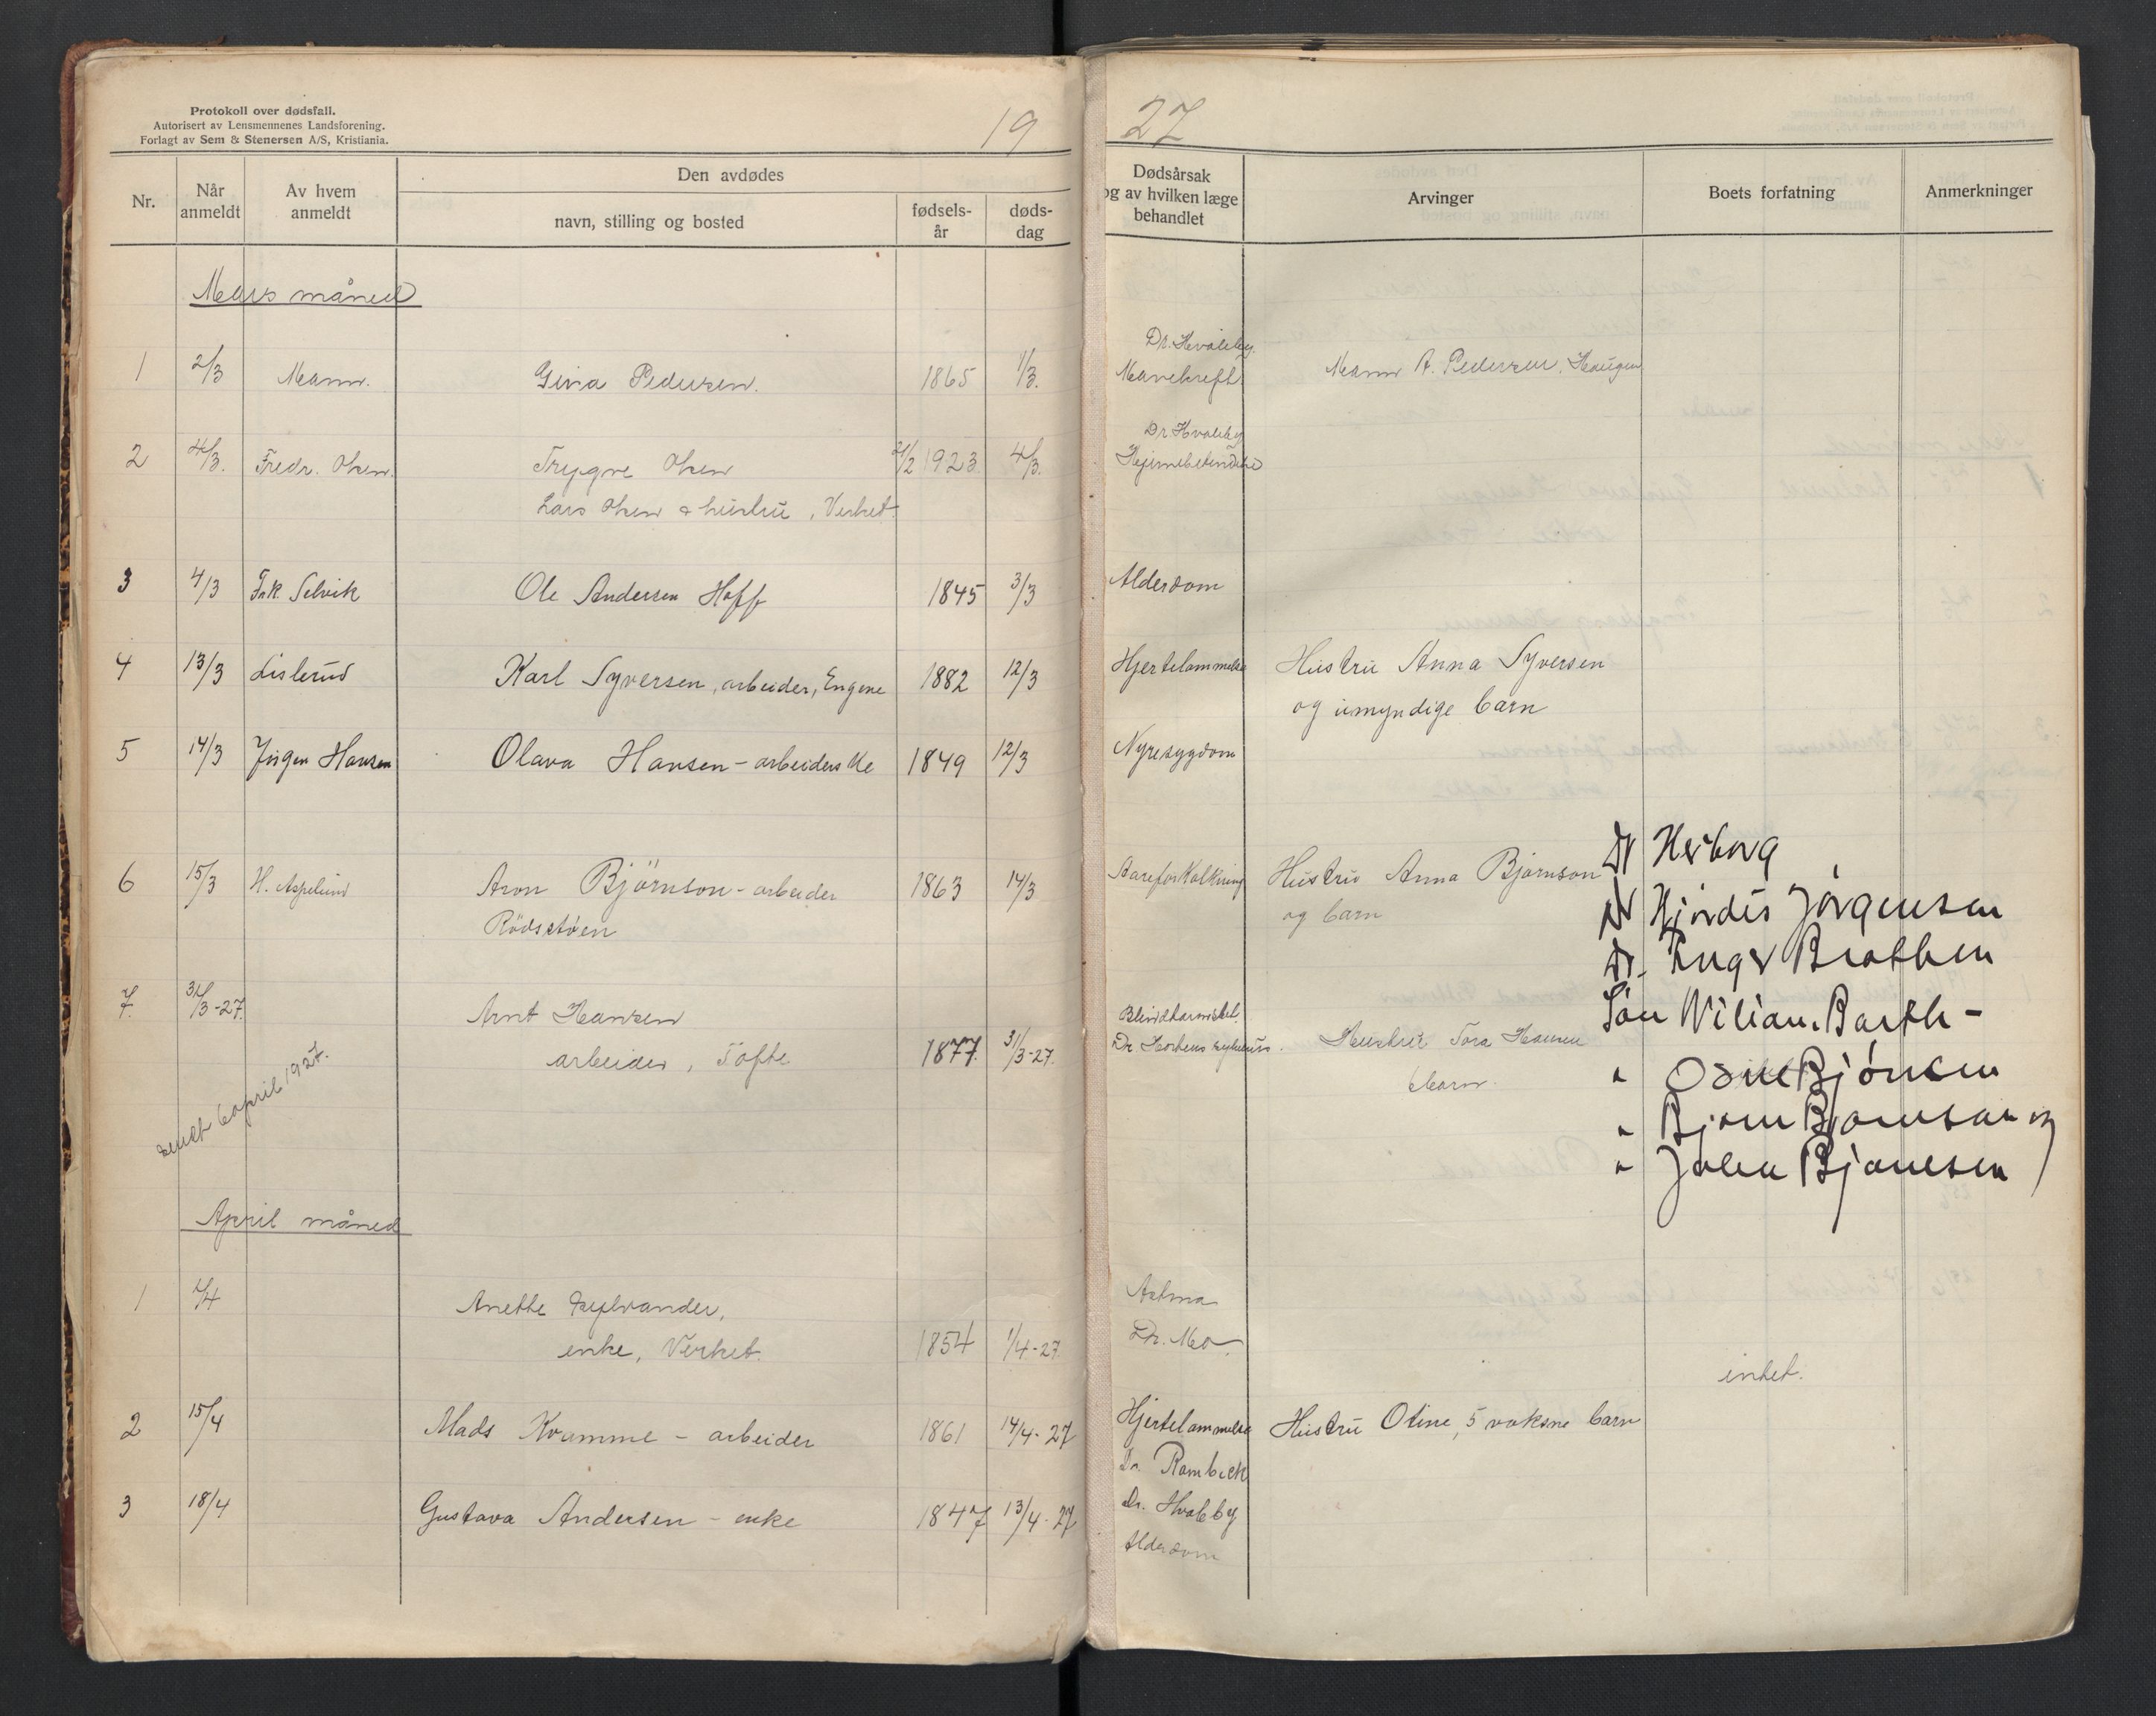 Protokoll over dødsfall.
Autorisert av Lensmennenes Landsforening.
Forlagt av Sem & Stenersen A/S, Kristiania.
19 27
Nr.
Når anmeldt
Av hvem anmeldt
Den avdødes
navn, stilling og bosted
fødsels-år
døds-dag
Dødsårsak
og av hvilken læge
behandlet
Arvinger
Boets forfatning
Anmerkninger
Mars måned
Dr. Hvaleby.
1 2/3 Mann. Gina Pedersen. 1865 1/3. Mavekreft Mann A. Pedersen, Haugen
Dr Hvaleby
2 4/3. Fredr. Olsen. Trygve Olsen 2/2 1923. 4/3.
Lars Olsen & hustru, Verket.
3 4/3 Frk. Selvik Ole Andersen Hoff 1845 3/3 Alderdom
4 13/3 Lislerud Karl Syversen, arbeider, Engene 1882 12/3 Hjertelammelse Hustru Anna Syversen
og umyndige barn
5 14/3 Jörgen Hansen Olava Hansen - arbeiderske 1849 12/3 Nyresygdom
6 15/3 H. Aspelund Aron Björnson - arbeider 1863 14/3 Aareforkalkning Hustru Anna Bjørnson
Rödsetöen
og barn
Dr Herborg
Dr Hjördis Jörgensen
Dr. Inger Brathen
Sön Wilian. Barth -
" Bjönsen
" Bjorn Bjornson og
" Bjornsen
7. 31/3-27. Arnt Hansen
arbeider, Tofte 1877. 31/3-27. Blindtarmsbet. Hustru Tora Hansen
Dr Hortens sykehus.
& barn.
sendt 6 april 1927.
April måned
1 2/4 Anette Sylvander, Astma
enke, Verket. 1854 1/4-27. Dr. Mo
intet.
2 15/4 Mads Kvamme - arbeider 1861 14/4-27 Hjertelammelse Hustru Otine, 5 voksne barn
Dr. Rambæk
3 18/4 Gustava Andersen - enke 1847 13/4-27 Dr. Hvaleby
Alderdom